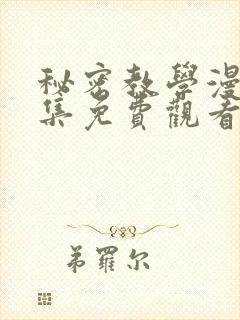 秘密教學漫
集免費觀看
弟羅尔